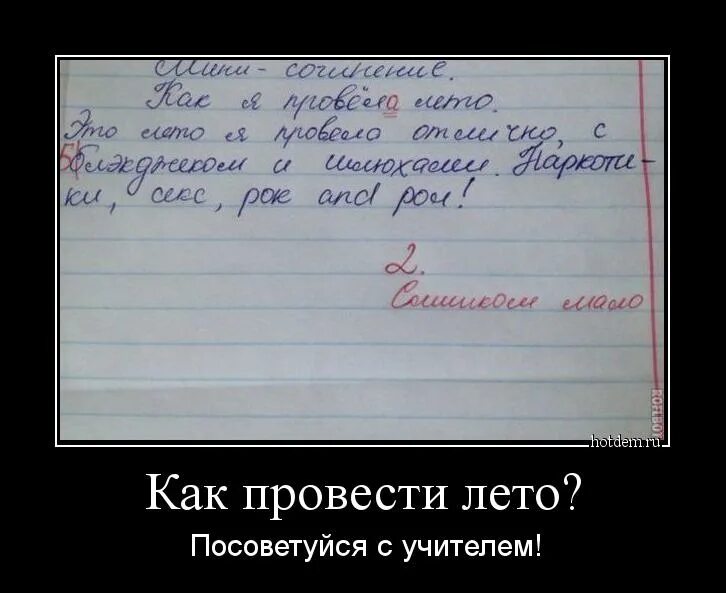 Мини - сочинение.
Как я провёла лето.
Это лето я провела отлично, с
блэкджеком и шлюхами. Наркоти-
ки, секс, рок and рол!
2.
Слишком мало
hotdem.ru
Как провести лето?
Посоветуйся с учителем!